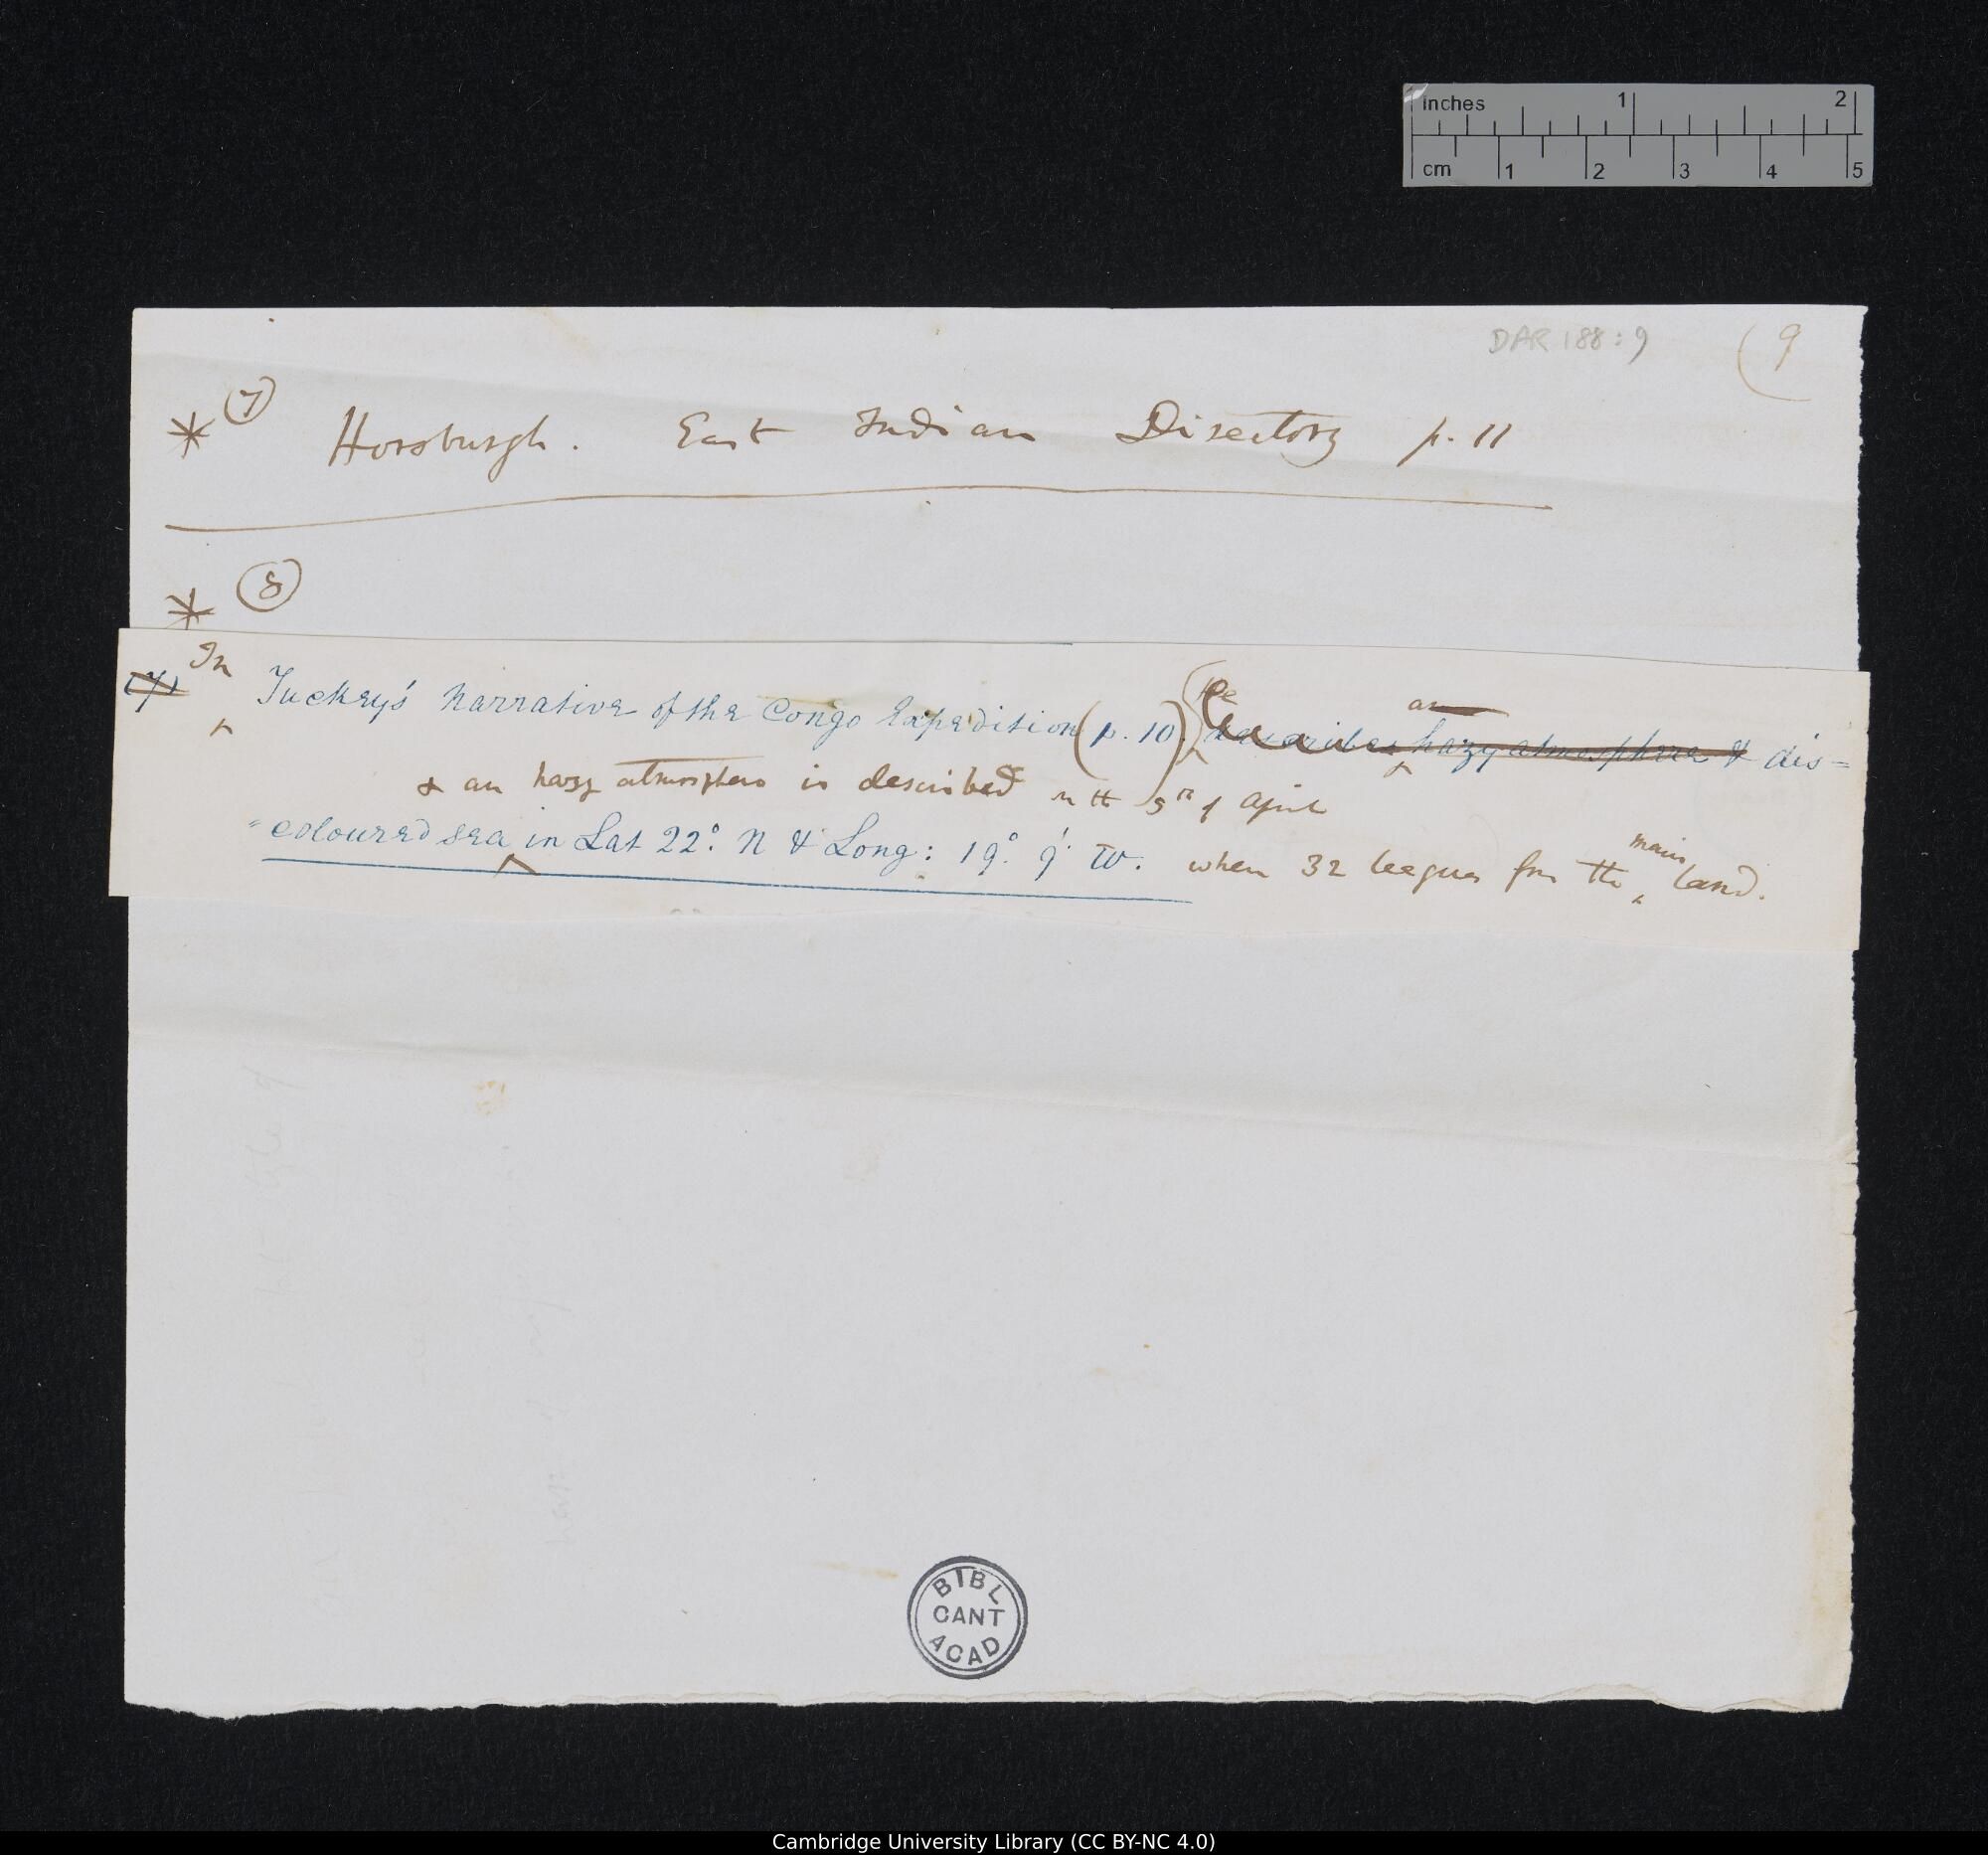 inches 1 2
cm 1 2 3 4 5
DAR 188:9 (9
* (7) Horsburgh. East Indian Directory p. 11
* (8)
(7) In Tuckey's Narrative of the Congo Expedition (p. 10) describes an hazy atmosphere & dis=
& an hazy atmosphere is described on the 9th of April
"coloured sea in Lat 22° N & Long: 19° 9' W. when 32 leagues from the main land.
BIBL
CANT
ACAD
Cambridge University Library (CC BY-NC 4.0)